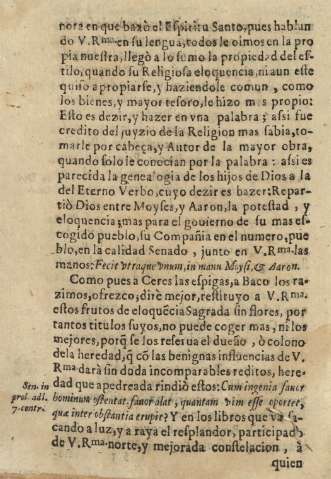 nora en que baxò el Espiritu Santo, pues hablan
do V.Rma. en su lengua, todos le oimos en la pro
pia nuestra, llegò a lo sumo la propiedad del es-
tilo, quando su Religiosa eloquencia, ni aun este
quiso apropiarse, y haziendole comun, como
los bienes, y mayor tesoro, le hizo mas propio:
Esto es dezir, y hazer en vna palabra; assi fue
credito del juyzio de la Religion mas sabia, to-
marle por cabeça, y Autor de la mayor obra,
quando solo le conocian por la palabra: assi es
parecida la genealogia de los hijos de Dios a la
del Eterno Verbo, cuyo dezir es hazer: Repar-
tiò Dios entre Moyses, y Aaron, la potestad, y
eloquencia; mas para el gouierno de su mas es-
cogido pueblo, su Compañia en el numero, pue
blo, en la calidad Senado, junto en V.Rma. las
manos: Fecit vtraque vnum, in manu Moysi, & Aaron.
Como pues a Ceres las espigas, a Baco los ra-
zimos, ofrezco; dirè mejor, restituyo a V.Rma.
estos frutos de eloquẽcia Sagrada sin flores, por
tantos titulos suyos, no puede coger mas, ni los
mejores, porq̃ se los reserua el dueño, ò colono
dela heredad, q̃ cõ las benignas influencias de V.
Rma. darà sin duda incomparables reditos, here-
dad que apedreada rindiò estos: Cum ingenia sancr
Sen. in
prol. adl.
7. contr.
hominum ostentat. sancr alat, quantam vim esse oportet,
quæ inter obstantia erupit? Y en los libros que va sa-
cando a luz, y a raya el resplandor, participado
de V.Rma. norte, y mejorada constelacion, à
quien